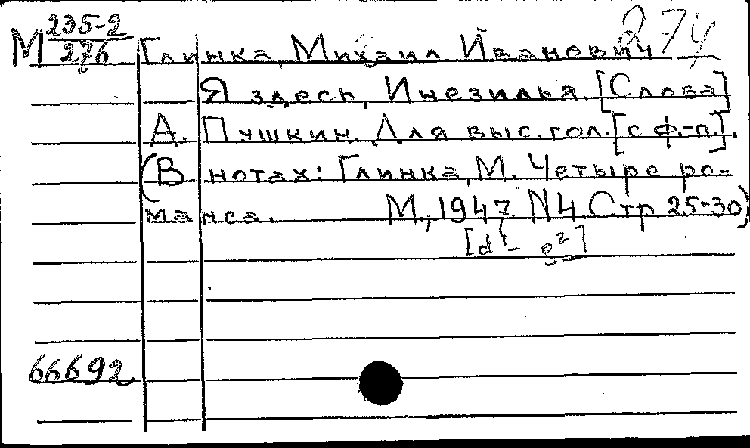 М 235-2/276 Глинка, Михаил Иванович 274
Я здесь, Инезилья. [Слова]
А. Пушкин. Для выс. гол. [с ф.-п.].
(В нотах: Глинка, М. Четыре ро-
манса. М., 1947 N4 Стр 25-30)
[d¹- e²]
66692